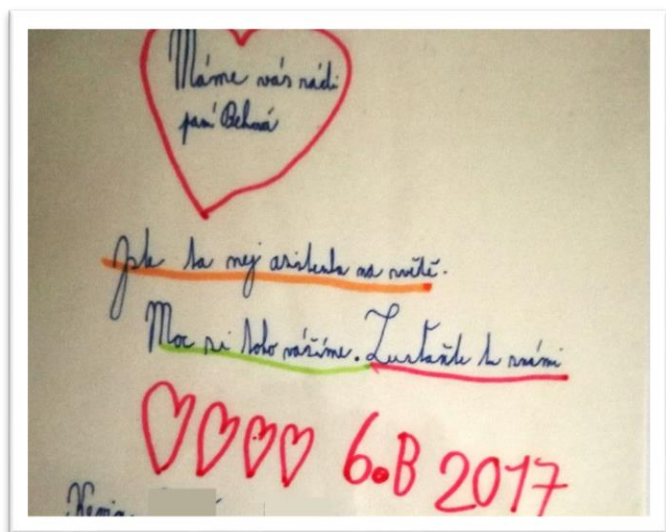 Máme vás rádi
paní Behná
Jste ta nej asistenta na světě.
Moc si toho vážíme. Zustaňte tu snámi
6.B 2017
Xenia